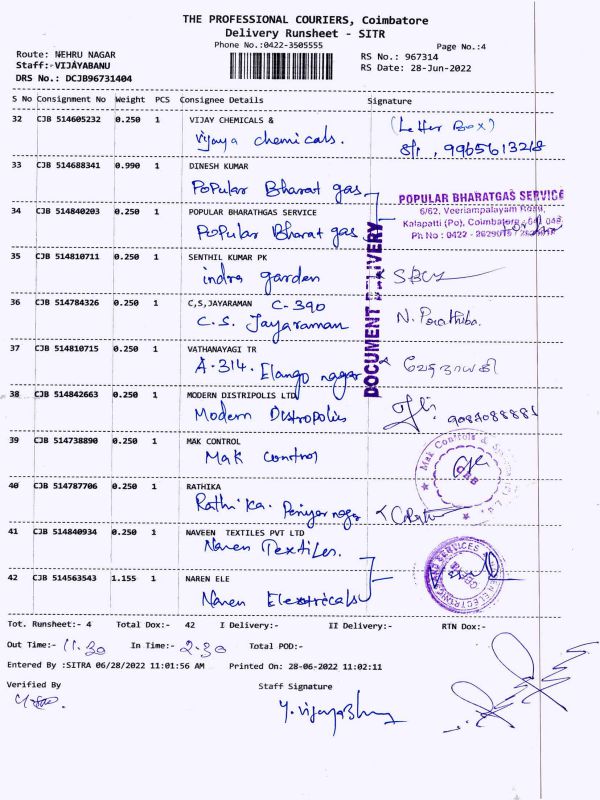 THE PROFESSIONAL COURIERS, Coimbatore
Delivery Runsheet - SITR
Phone No.:0422-3505555
Page No.:4
Route: NEHRU NAGAR
RS No.: 967314
Staff:-VIJAYABANU
RS Date: 28-Jun-2022
DRS No.: DCJB96731404
S No Consignment No Weight PCS Consignee Details Signature
32 CJB 514605232 0.250 1 VIJAY CHEMICALS & (Letter Box)
Vijaya chemicals. 9965613248
33 CJB 514688341 0.990 1 DINESH KUMAR
Popular Bharat gas
POPULAR BHARATGAS SERVICE
34 CJB 514840203 0.250 1 POPULAR BHARATHGAS SERVICE 6/62, Veeriampalayam Road,
Kalapatti (Po), Coimbatore - 641 048.
Popular Bharat gas Ph No : 0422 - 2629015
DOCUMENT DELIVERY
35 CJB 514810711 0.250 1 SENTHIL KUMAR PK
indra garden
36 CJB 514784326 0.250 1 C,S,JAYARAMAN C-390
C.S. Jayaraman N. Prathiba.
37 CJB 514810715 0.250 1 VATHANAYAGI TR
A-314. Elango nagar வேதநாயகி
38 CJB 514842663 0.250 1 MODERN DISTRIPOLIS LTD
Modern Distropolis 9087088881
39 CJB 514738890 0.250 1 MAK CONTROL
Mak control
Mak Controls &
CBE
40 CJB 514787706 0.250 1 RATHIKA
Rathika. Periyar nagar
41 CJB 514840934 0.250 1 NAVEEN TEXTILES PVT LTD
Naren Textiles.
42 CJB 514563543 1.155 1 NAREN ELE
Naren Electricals
Tot. Runsheet:- 4 Total Dox:- 42 I Delivery:- II Delivery:- RTN Dox:-
Out Time:- 11.30 In Time:- 2.30 Total POD:-
Entered By :SITRA 06/28/2022 11:01:56 AM Printed On: 28-06-2022 11:02:11
Verified By Staff Signature
Y. Vijayabhanu